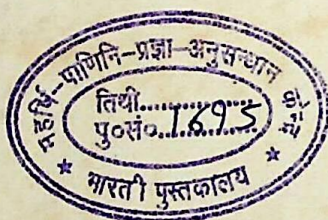 महर्षि-पाणिनि-प्रज्ञा-अनुसन्धान केन्द्र
तिथी..................
पु०सं०..1695......
★ भारती पुस्तकालय ★